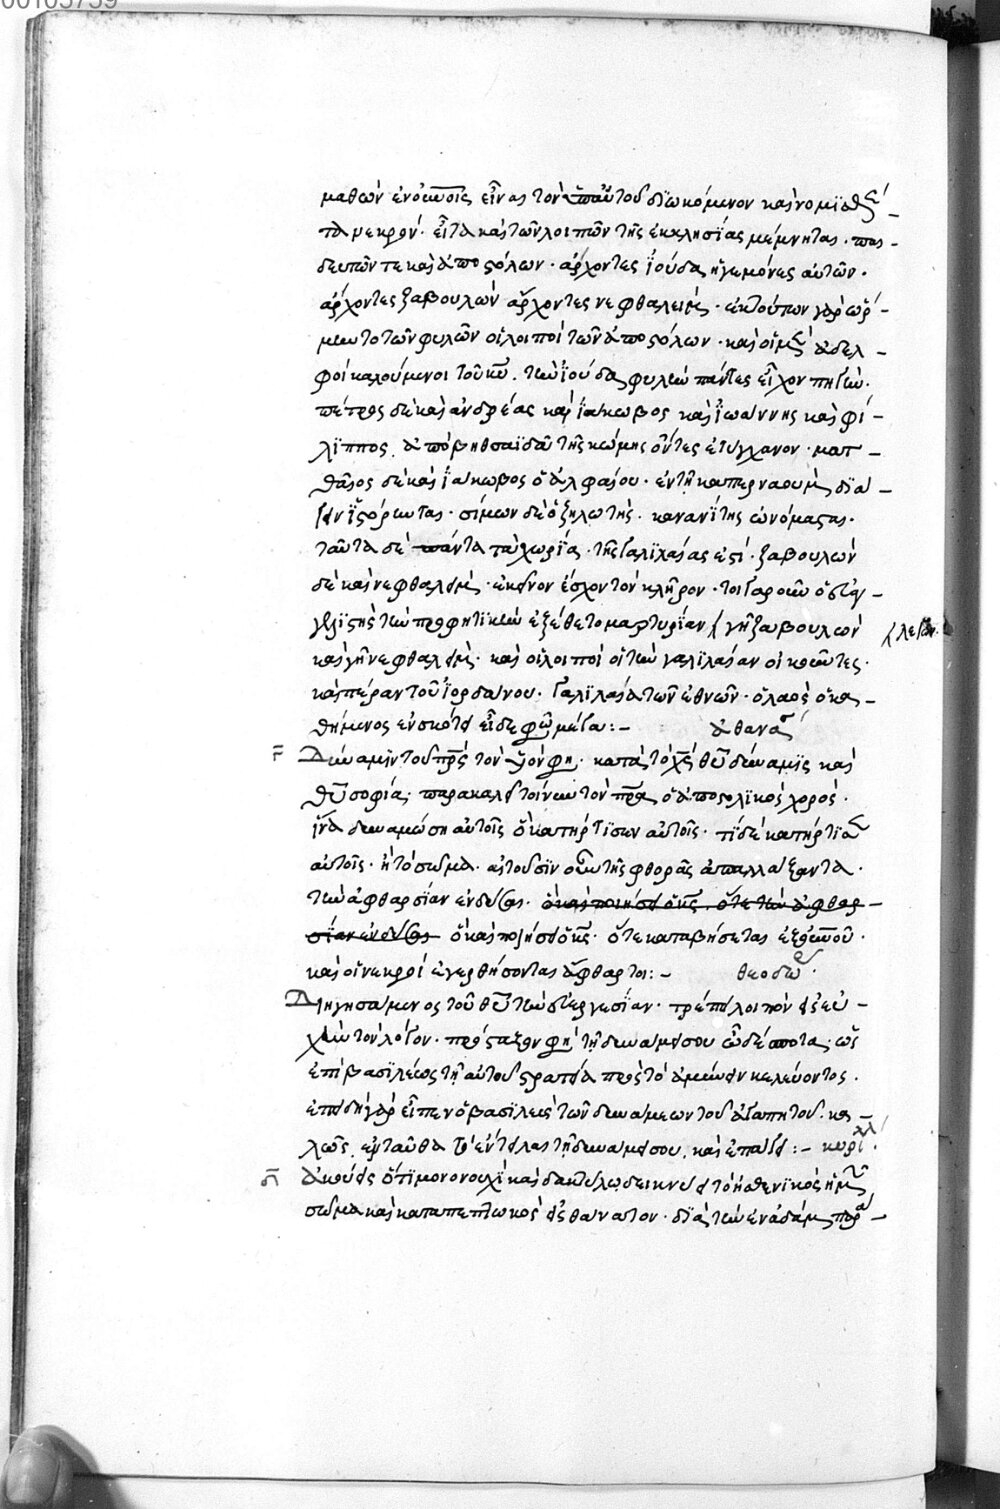 00105759
μαθὼν ἐνόσοις εἶναι τὸν ὑπ' αὐτοῦ διωκόμενον καὶ νομισθέ-
τα νεκρόν· εἶτα καὶ τῶν λοιπῶν τῆς ἐκκλησίας μέμνηται·
τε καὶ ἀποστόλων· ἄρχοντες ἰούδα ἡγεμόνες αὐτῶν·
ἄρχοντες ζαβουλὼν ἄρχοντες νεφθαλείμ· ἐκ τούτων γὰρ ὥρ-
μηντο τῶν φυλῶν οἱ λοιποὶ τῶν ἀποστόλων· καὶ οἱ μὲν ἀδελ-
φοὶ καλούμενοι τοῦ κυ̅. τὴν ἰούδα φυλὴν πάντες εἶχον πηγήν·
πέτρος δὲ καὶ ἀνδρέας καὶ ἰάκωβος καὶ ἰωάννης καὶ φί-
λιππος, ἀπὸ βηθσαϊδὰ τῆς κώμης ὄντες ἐτύγχανον· ματ-
θαῖος δὲ καὶ ἰάκωβος ὁ ἀλφαίου· ἐν τῇ καπερναοὺμ διά-
γειν ἱστόρηνται· σίμων δὲ ὁ ζηλωτὴς· κανανίτης ὠνόμασται·
ταῦτα δὲ πάντα τὰ χωρία· τῆς γαλιλαίας ἐστί· ζαβουλὼν
δὲ καὶ νεφθαλεὶμ· ἐκεῖνον ἔσχον τὸν κλῆρον· τοιγαροῦν ὁ εὐαγ-
γελιστὴς τὴν προφητικὴν ἐξέθετο μαρτυρίαν γῆ ζαβουλὼν
καὶ γῆ νεφθαλεὶμ· καὶ οἱ λοιποὶ οἱ τὴν γαλιλαίαν οἰκοῦντες·
καὶ πέραν τοῦ ἰορδάνου· γαλιλαία τῶν ἐθνῶν· ὁ λαὸς ὁ κα-
θήμενος ἐν σκότει εἶδε φῶς μέγα:- ἀθανα
Δύναμιν τοῦ πρς τὸν υἱόν φη· κατὰ τὸ χς θυ δύναμις καὶ
θυ σοφία· παρακαλεῖ τοίνυν τὸν πρα ὁ ἀποστολικὸς χορὸς·
ἵνα δυναμώσῃ αὐτοῖς ὃ κατήρτισεν αὐτοῖς· τί δὲ κατήρτισεν
αὐτοῖς· ἢ τὸ σῶμα· αἰτοῦσιν οὖν τῆς φθορᾶς ἀπαλλάξαντα·
τὴν ἀφθαρσίαν ἐνδῦσαι· ὃ καὶ ποιήσει ὁ κς· ὅτε τὴν ἀφθαρ-
σίαν ἐνδῦσαι ὃ καὶ ποιήσει ὁ κς· ὅτε καταβήσεται ἐξ οὐνοῦ·
καὶ οἱ νεκροὶ ἐγερθήσονται ἄφθαρτοι:- θεοδω·
Διηγησάμενος τοῦ θυ τὴν εὐεργεσίαν· τρέπει λοιπὸν εἰς εὐ-
χὴν τὸν λόγον· πρόσταξον φη τῇ δυνάμει σου ὦ δέσποτα· ὡς
ἐπὶ βασιλέως τῇ αὐτοῦ στρατιᾷ πρὸς τὸ ἀμύνειν κελεύοντος·
ἐπειδὴ γὰρ εἶπεν ὁ βασιλεὺς τῶν δυνάμεων τοῦ ἀγαπητοῦ· κα-
λῶς ἐνταῦθα τὸ ἔντειλαι τῇ δυνάμει σου, καὶ ἐπάγει:- κυρίλ·
Ἀκούεις ὅτι μονονουχὶ καὶ δακτύλῳ δεικνύει τὸ ἠσθενικὸς ἡμῶν
σῶμα καὶ καταπεπτωκὸς εἰς θάνατον· διὰ τὴν ἐν ἀδὰμ παρα-